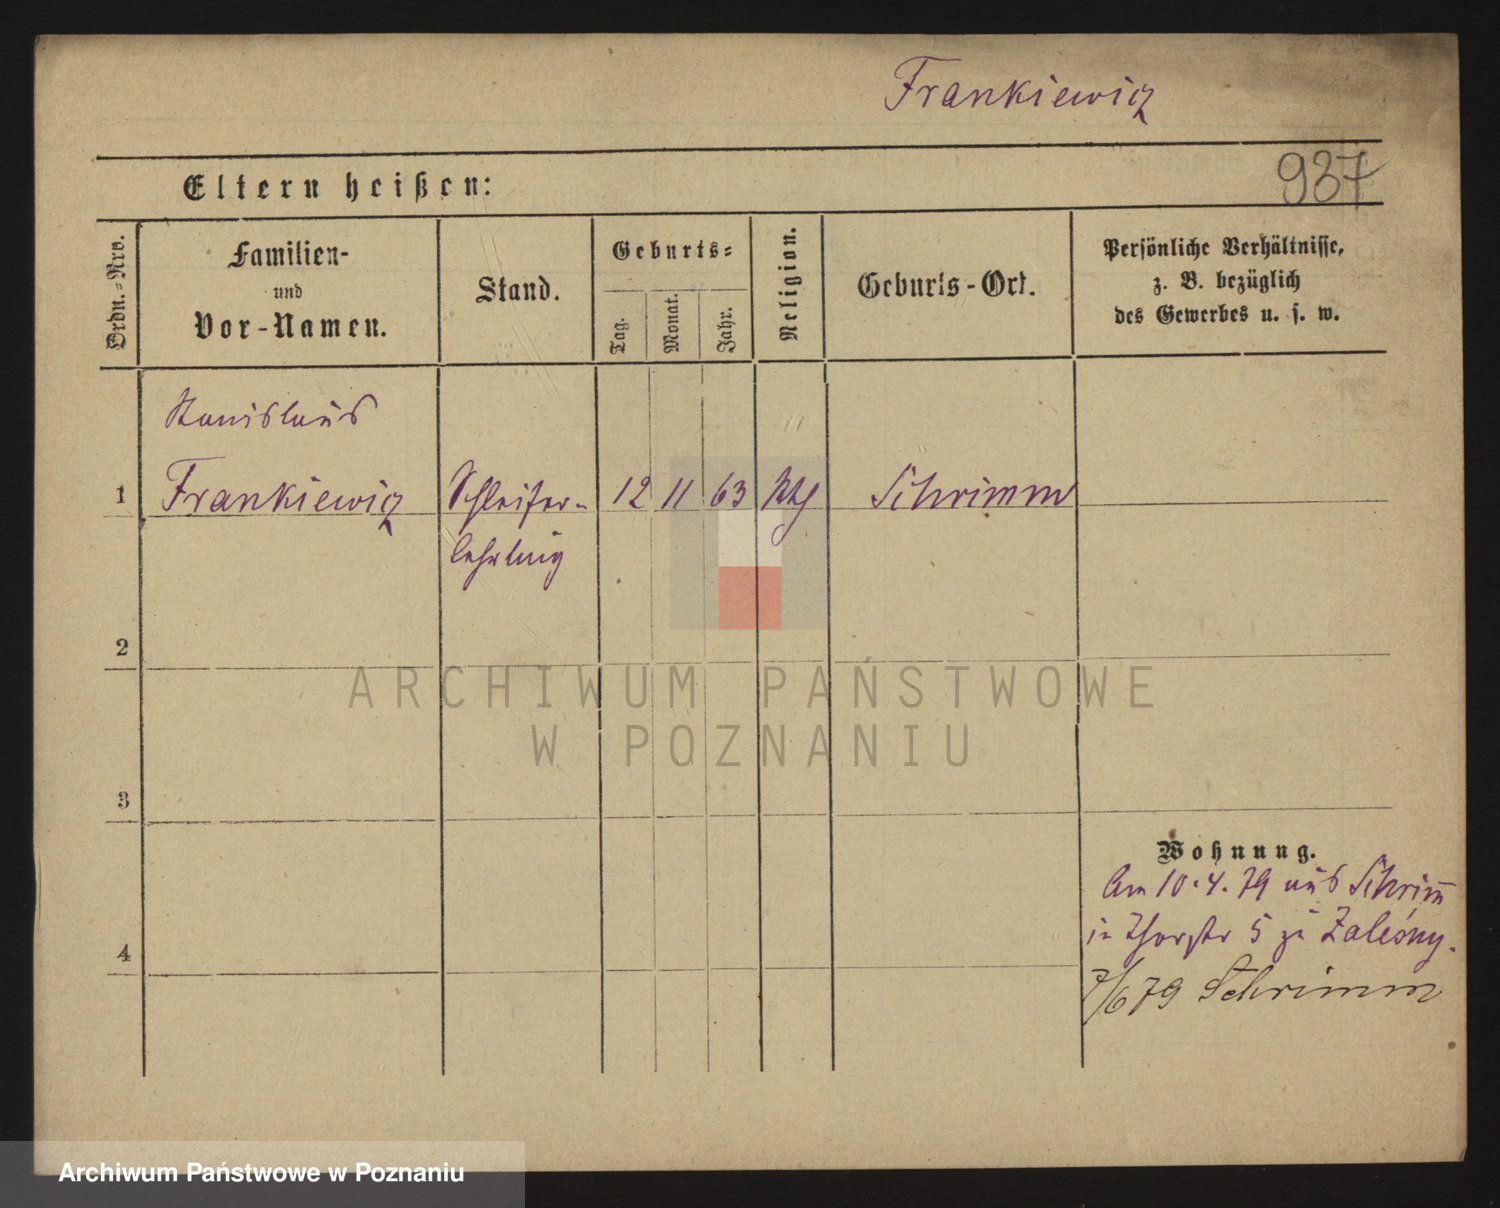 Frankiewicz
937
Eltern heißen:
Ordn.-Nro.
Familien-
und
Vor-Namen.
Stand.
Geburts-
Tag.
Monat.
Jahr.
Religion.
Geburts-Ort.
Persönliche Verhältnisse,
z. B. bezüglich
des Gewerbes u. s. w.
Stanislaus
1 Frankiewicz Schleifer- 12 11 63 kth Schrimm
lehrling
2
3
4
Wohnung.
Am 10.4.79 aus Schrim̅
in Thorstr 5 zu
7/6 79 Schrimm
ARCHIWUM PAŃSTWOWE
W POZNANIU
Archiwum Państwowe w Poznaniu